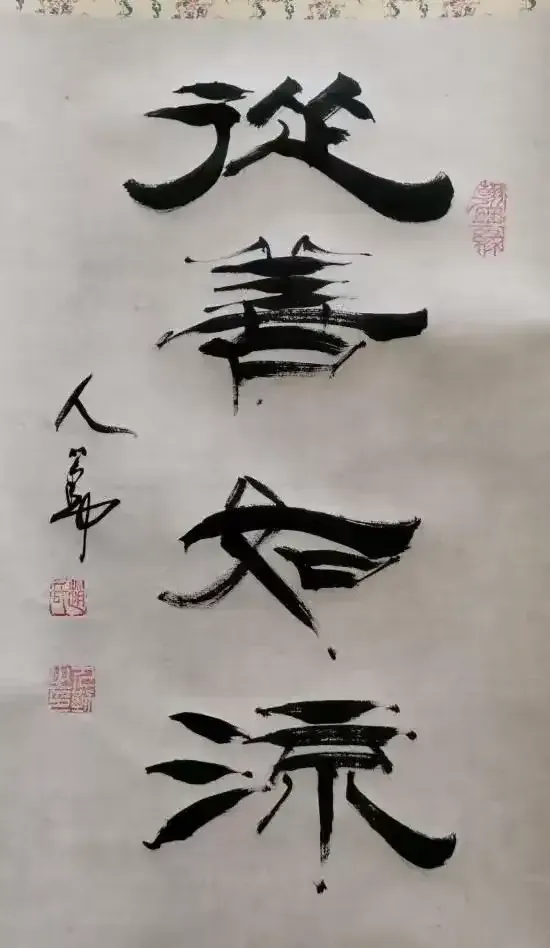 從善如流
人